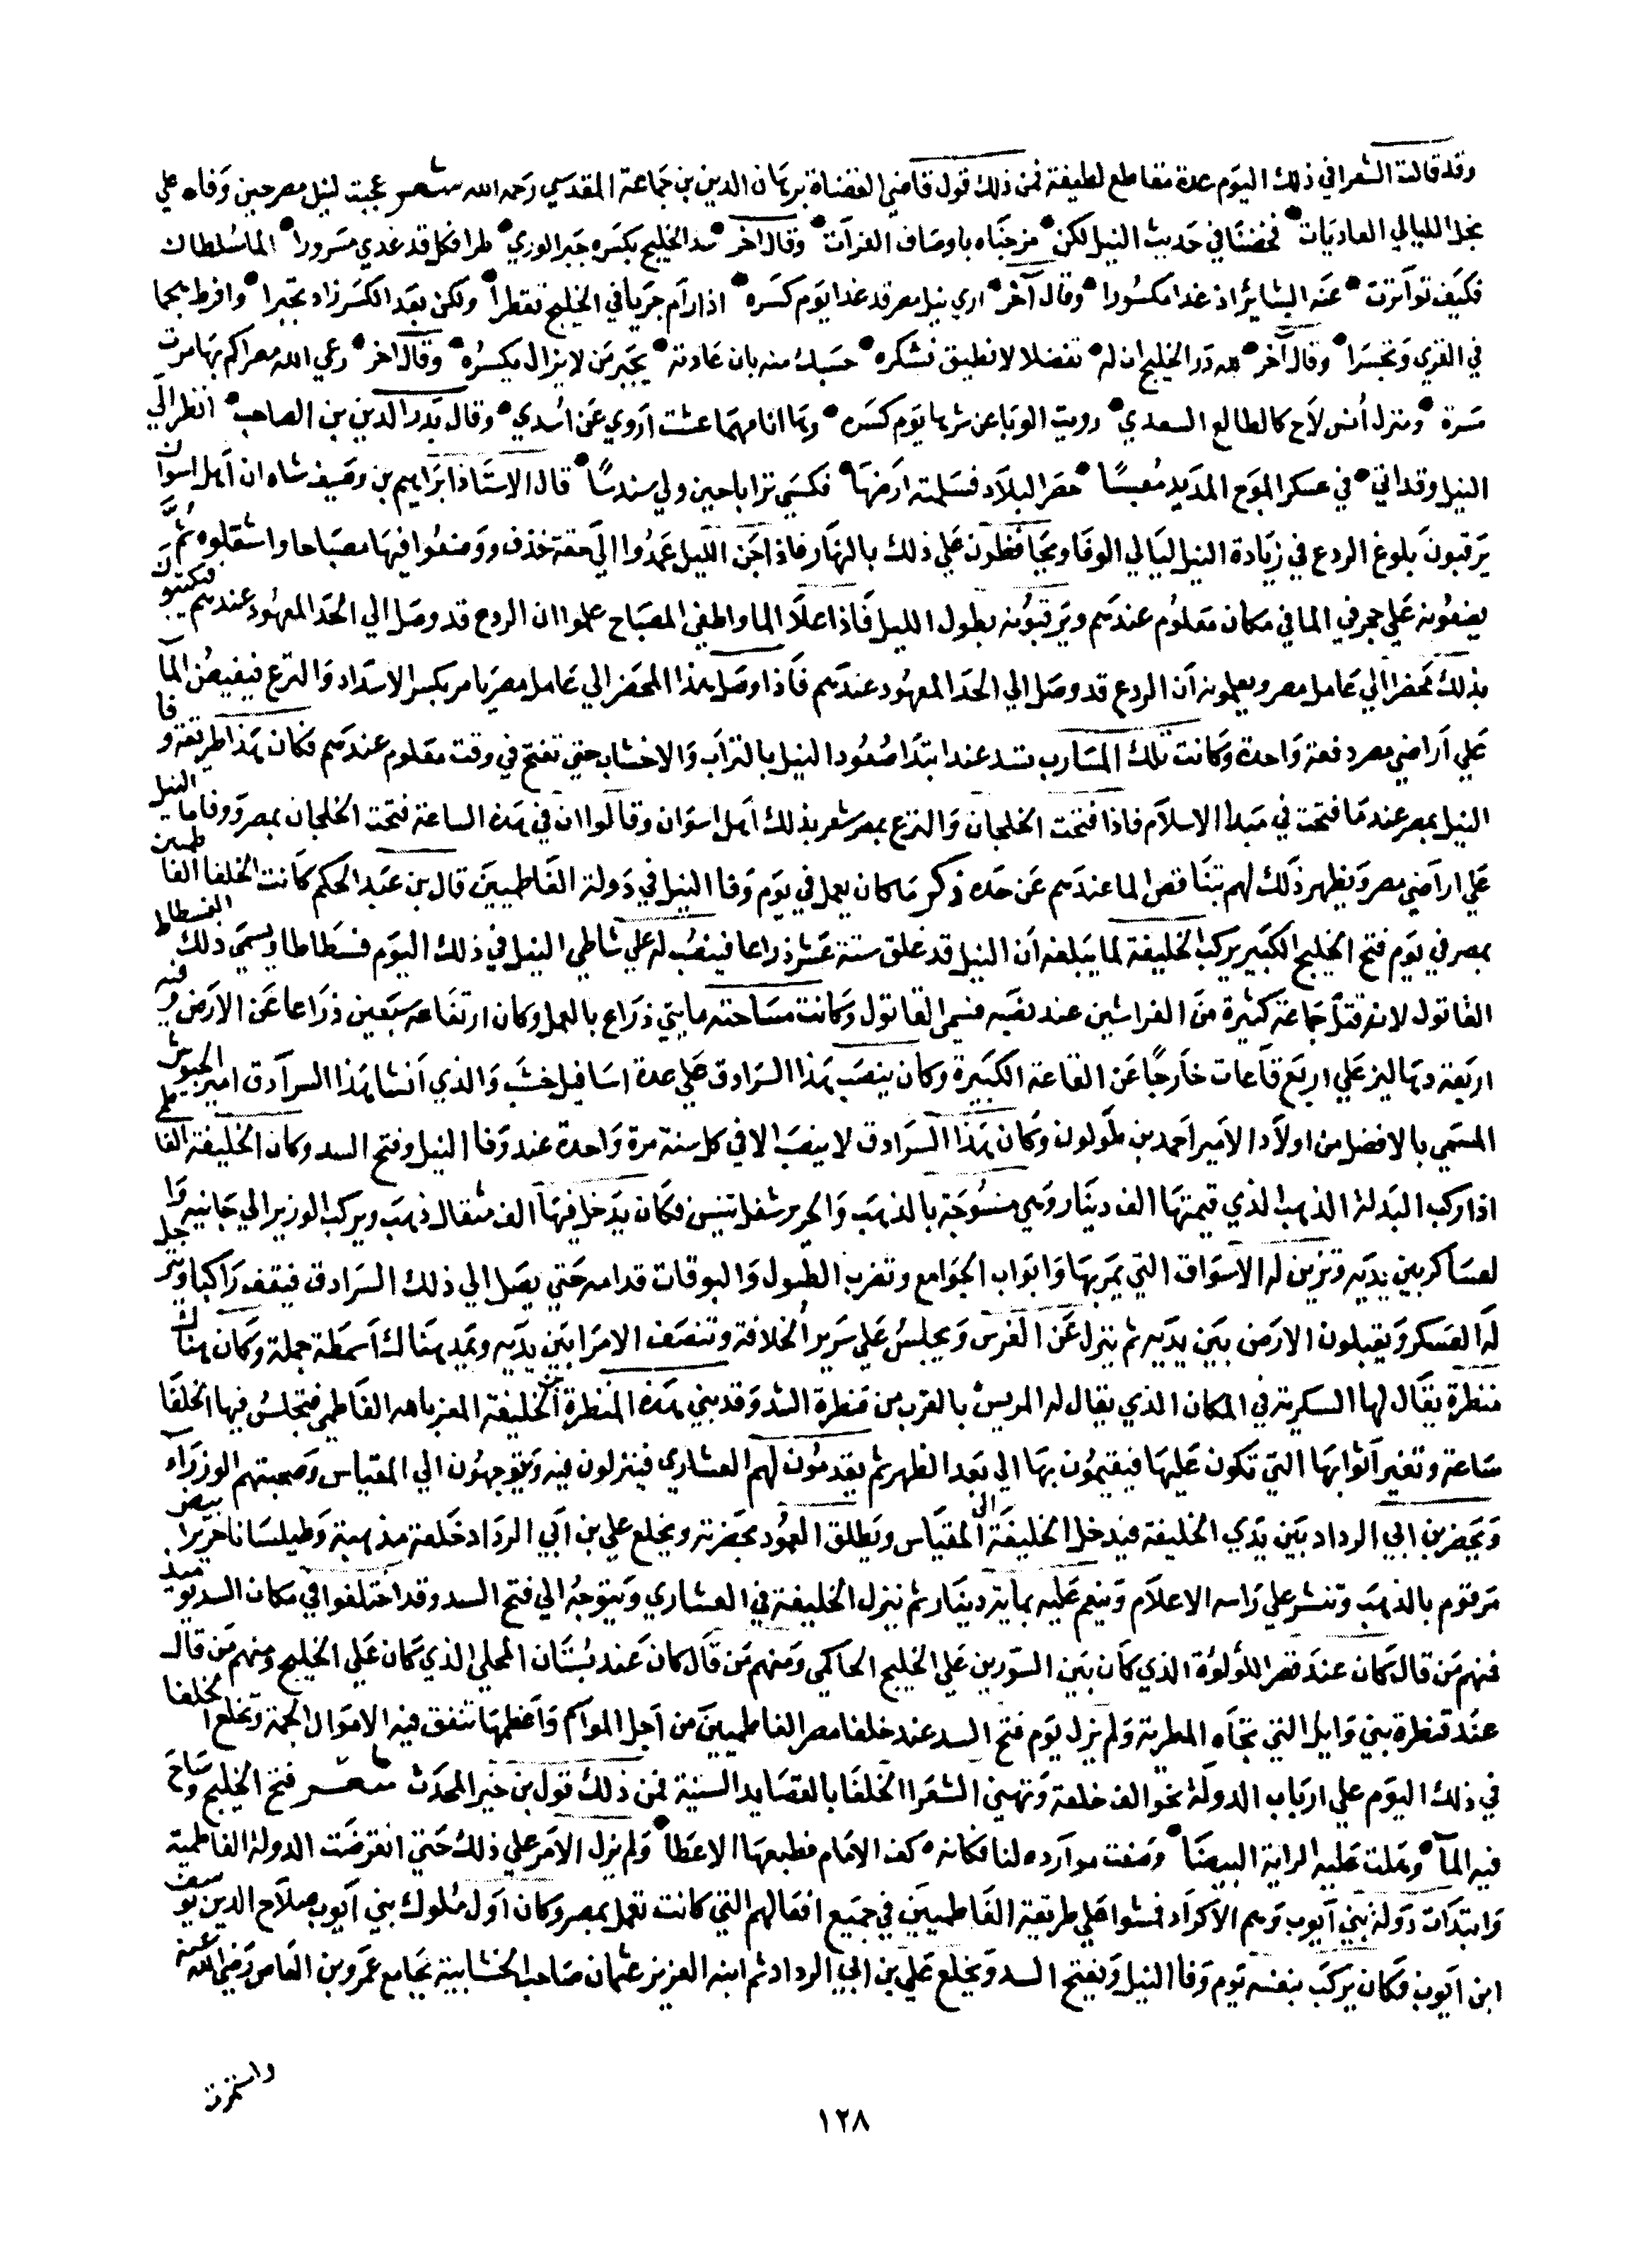 وقد قالت الشعرا في ذلك اليوم عدة مقاطع لطيفة فمن ذلك قول قاضي القضاة برهان الدين بن جماعة المقدسي رحمه الله شعر عجبت لنيل مصر حين وفاه علي
نجل الليالي العاديات • فخضنا في حديث النيل لكن • مزجناه باوصاف الفرات • وقال اخر • سد الخليج بكسره جبر الوري • طرا فكل قد غدي مسرورا • الما سلطان
فكيف تواترت • عنه البشاير اذ غدا مكسورا • وقال آخر • اري نيل مصر قد غدا يوم كسره • اذا رام جريا في الخليج تقطرا • ولكن بعد الكسر زاد تجبرا • وافرط هجما
في القري وتجسرا • وقال آخر • لله در الخليج ان له • تفضلا لا نطيق نشكره • حسبك منه بان عادته • يجبر من لا يزال يكسره • وقال اخر • رعي الله مصر اكم بها مرت
مسرة • ومنزل أنس لاح كالطالع السعدي • رويت الوبا عن شربها يوم كسره • وها انا مهما عشت اروي عن اسدي • وقال بدر الدين بن الصاحب • انظر الي
النيل وقد اتي • في عسكر الموج المديد معبسا • حصر البلاد فسلمته ارضها • فكسي ترابا حين ولي سندسا • قال الاستاذ ابراهيم بن وصيف شاه ان اهل اسوان
يرقبون بلوغ الردع في زيادة النيل ليالي الوفا ويحافظون علي ذلك بالنهار فاذا جن الليل عمدوا الي حقة خذف ووضعوا فيها مصباحا واشعلوه ثم
يضعونه علي حجر في الما في مكان معلوم عندهم ويرقبونه بطول الليل فاذا علا الما واطفي المصباح علموا ان الردع قد وصل الي الحد المعهود عندهم فيكتبون
بذلك محضرا الي عامل مصر ويعلمونه ان الردع قد وصل الي الحد المعهود عندهم فاذا وصل هذا المحضر الي عامل مصر يامر بكسر الاسداد والترع فيفيض المآ
علي اراضي مصر دفعة واحدة وكانت تلك المسارب تسد عند ابتدا صعود النيل بالتراب والاخشاب حتي تفتح في وقت معلوم عندهم فكان هذا طريقة وفا
النيل بمصر عندما فتحت في مبدا الاسلام فاذا فتحت الخلجان والترع بمصر شعر بذلك اهل اسوان وقالوا ان في هذه الساعة فتحت الخلجان بمصر ووفا ما النيل
علي اراضي مصر ويظهر ذلك لهم بتناقص الما عندهم عن حده ذكر ما كان يعمل في يوم وفا النيل في دولة الفاطميين قال بن عبد الحكم كانت الخلفا الفاطميين
بمصر في يوم فتح الخليج الكبير يركب الخليفة لما يبلغه ان النيل قد غلق ستة عشر ذراعا فينصب له علي شاطي النيل في ذلك اليوم فسطاطا ويسمي ذلك الفسطاط
القاتول لانه قتل جماعة كثيرة من الفراشين عند نصبه فسمي القاتول وكانت مساحته مايتي ذراع بالعمل وكان ارتفاعه سبعين ذراعا عن الارض وفيه
اربعة دهاليز علي اربع قاعات خارجا عن القاعة الكبيرة وكان ينصب هذا السرادق علي عدة اساقيل خشب والذي انشا هذا السرادق امير الجيوش
المسمي بالافضل من اولاد الامير احمد بن طولون وكان هذا السرادق لا ينصب الا في كل سنة مرة واحدة عند وفا النيل وفتح السد وكان الخليفة الفاطمي
اذا ركب البدلة الذهب الذي قيمتها الف دينار وهي منسوجة بالذهب والحرير شغل تنيس فكان يدخل فيها الف مثقال ذهب ويركب الوزير الي جانبه وا
لعساكر بين يديه وتزين له الاسواق التي يمر بها وابواب الجوامع وتضرب الطبول والبوقات قدامه حتي يصل الي ذلك السرادق فيقف راكبا ويترجل
له العسكر ويقبلون الارض بين يديه ثم ينزل عن الفرس ويجلس علي سرير الخلافة وتنصف الامرا بين يديه ويمد هناك اسمطة جملة وكان هناك
منظرة يقال لها السكرية في المكان الذي يقال له المريس بالقرب من قنطرة السد وقد بني هذه المنظرة الخليفة المعز بالله الفاطمي فتجلس فيها الخلفا
ساعة وتغير اثوابها التي تكون عليها فيقيمون بها الي بعد الظهر ثم يقدمون لهم العشاري فينزلون فيه ويتوجهون الي المقياس وصحبتهم الوزراء
ويحضر بن ابي الرداد بين يدي الخليفة فيدخل الخليفة الي المقياس ويطلق العمود بحضرته ويخلع علي بن ابي الرداد خلعة مذهبة وطيلسانا حريرا ببيض
مرقوم بالذهب وتنشر علي راسه الاعلام وينعم عليه بماية دينار ثم ينزل الخليفة في العشاري ويتوجه الي فتح السد وقد اختلفوا في مكان السد يوميذ
فمنهم من قال كان عند قصر اللؤلؤة الذي كان بين السورين علي الخليج الحاكمي ومنهم من قال كان عند بستان المحلي الذي كان علي الخليج ومنهم من قال
عند قنطرة بني وايل التي تجاه المطرية ولم يزل يوم فتح السد عند خلفا مصر الفاطميين من اجل المواكم واعظمها تنفق فيه الاموال الجمة وتخلع الخلفا
في ذلك اليوم علي ارباب الدولة نحو الف خلعة وتهني الشعرا الخلفا بالقصايد السنية فمن ذلك قول بن خير المحدث شعر فتح الخليج وساح
فيه المآ • وعلت عليه الراية البيضا • وصفت موارده لنا فكانه • كف الامام فطبعها الاعطا • ولم يزل الامر علي ذلك حتي انقرضت الدولة الفاطمية
وابتدات دولة بني ايوب وهم الاكراد فمشوا علي طريقة الفاطميين في جميع افعالهم التي كانت تعمل بمصر وكان اول ملوك بني ايوب صلاح الدين يوسف
ابن ايوب فكان يركب بنفسه يوم وفا النيل ويفتح السد ويخلع علي بن ابي الرداد ثم ابنه العزيز عثمان صاحب الخشابية بجامع عمرو بن العاص رضي الله عنه
واستمرت
١٢٨